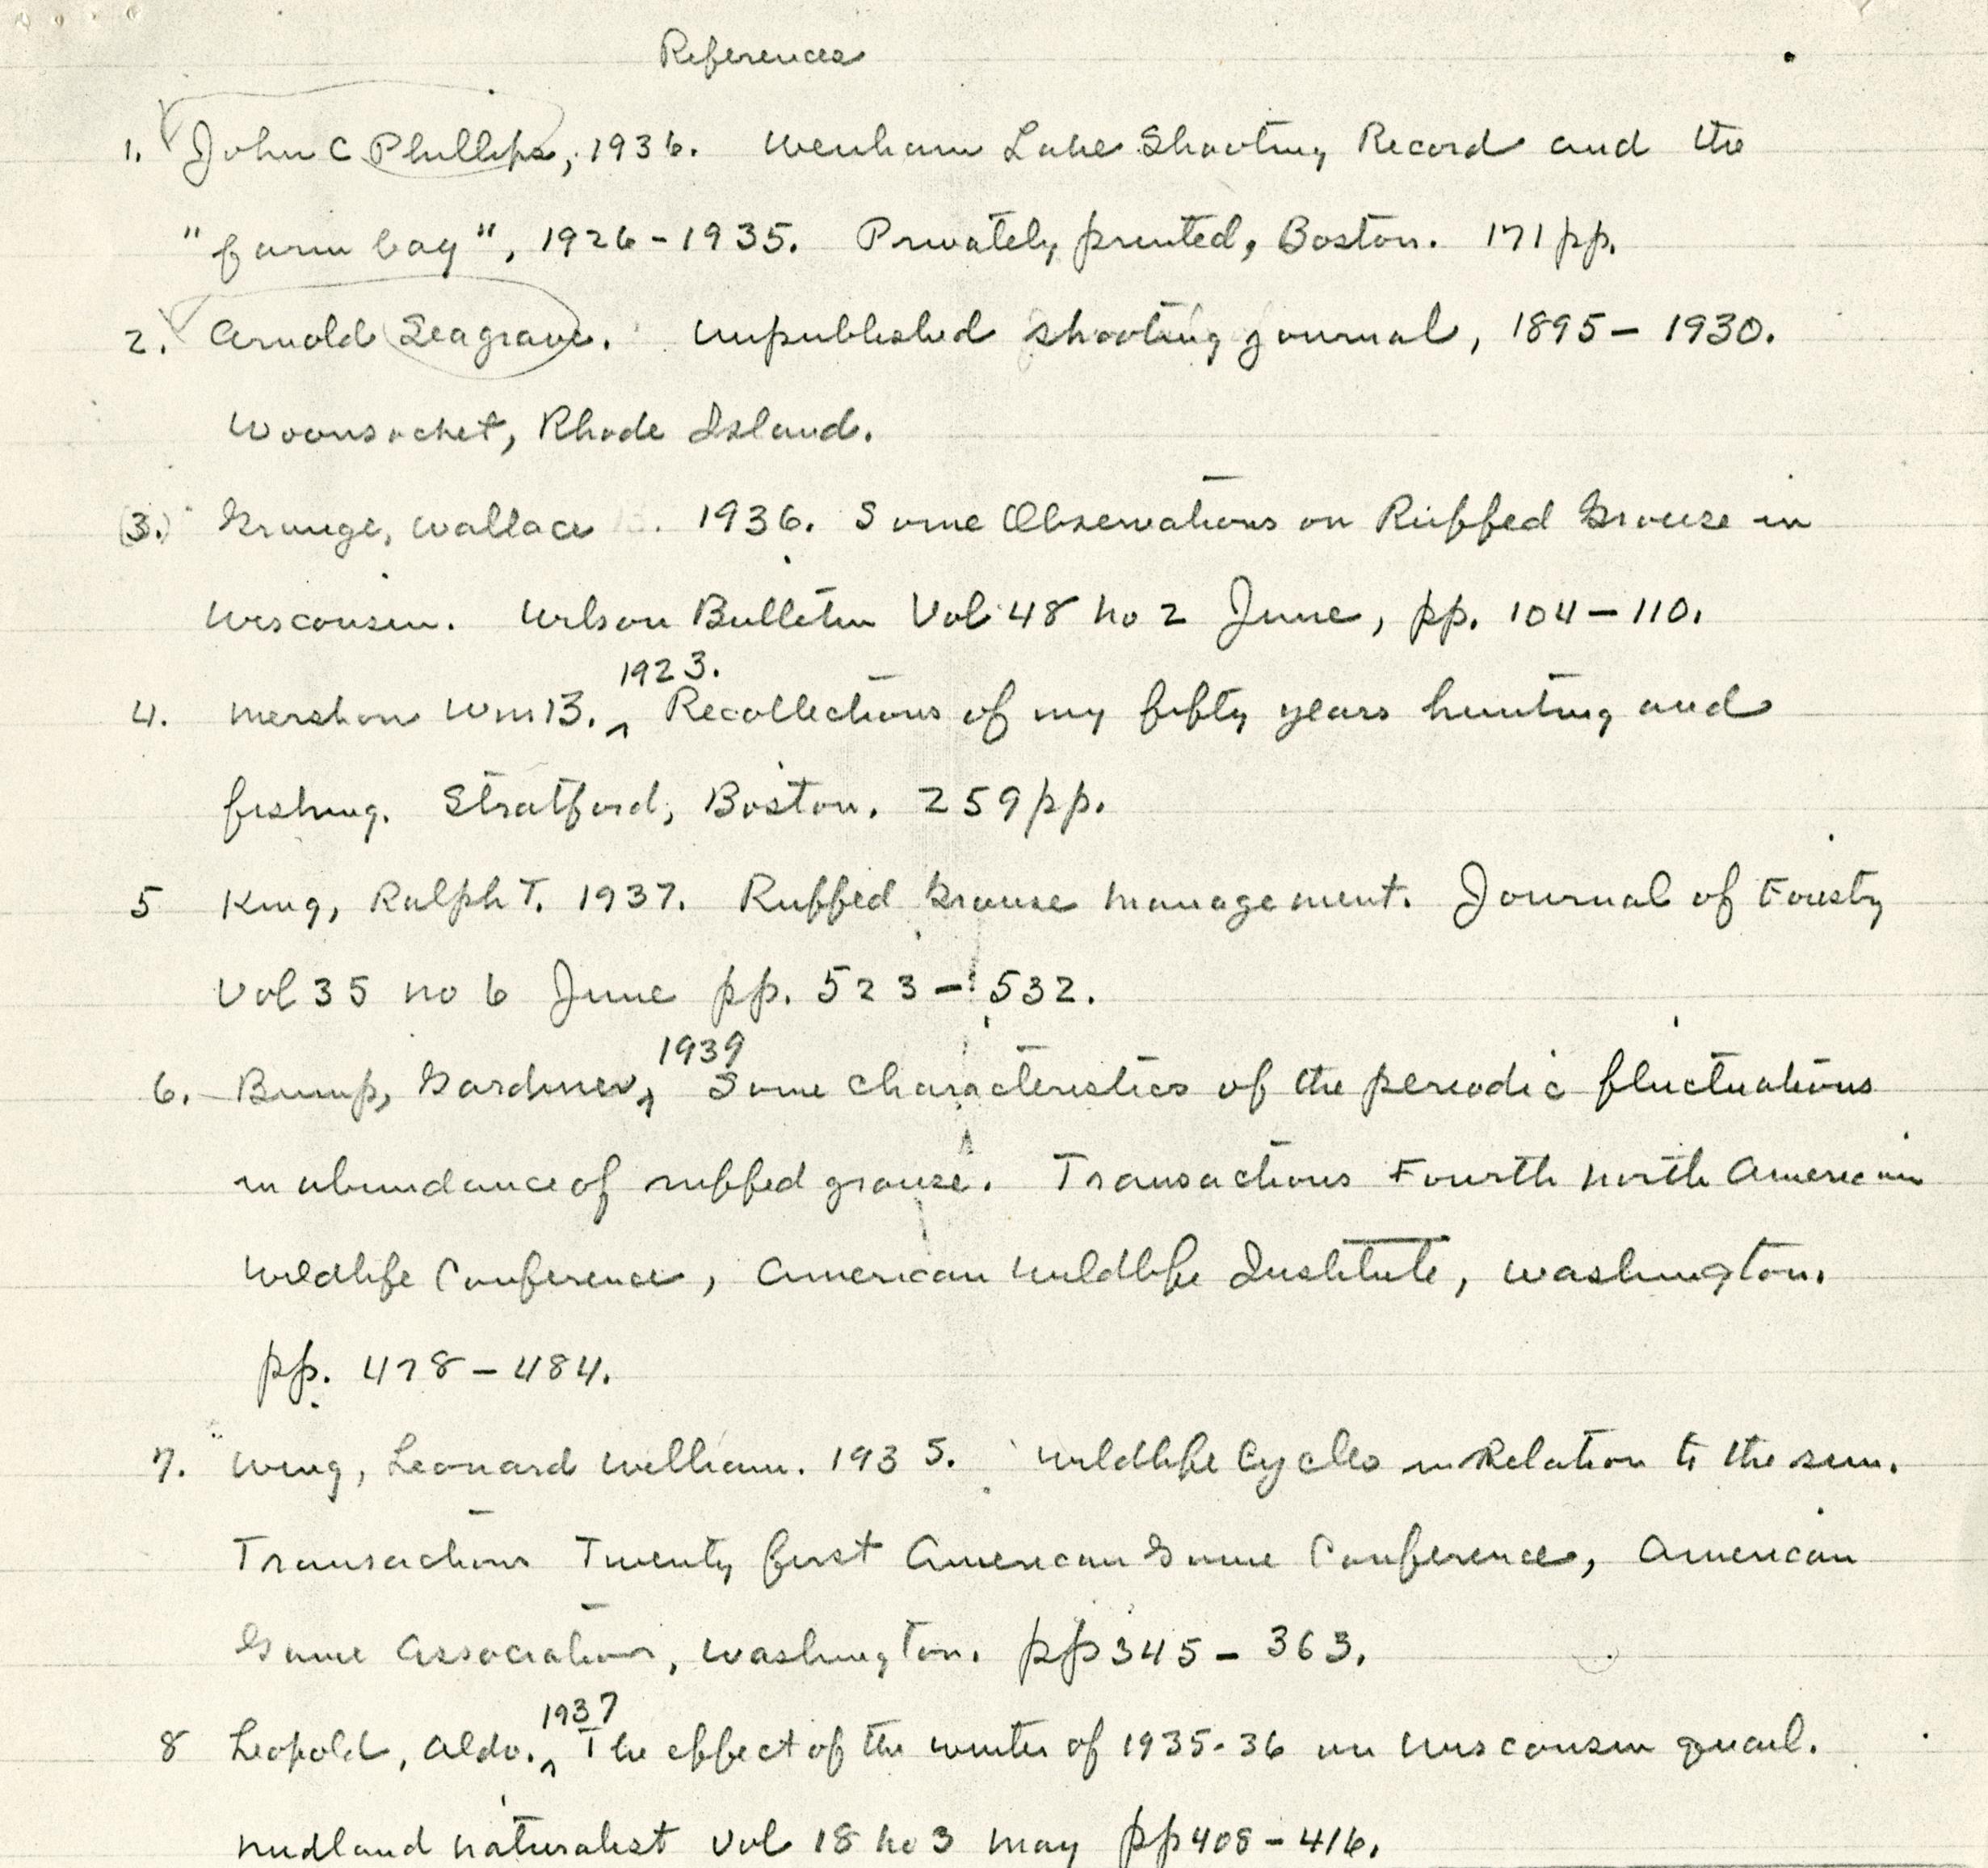 References
1. John C Phillips, 1936. Wenham Lake Shooting Record and the
"farm bag", 1926-1935. Privately printed, Boston. 171 pp.
2. Arnold Seagrave. Unpublished shooting journal, 1895-1930.
Woonsocket, Rhode Island.
(3.) Grange, Wallace 1936. Some Observations on Ruffed Grouse in
Wisconsin. Wilson Bulletin Vol 48 no 2 June, pp. 104-110.
1923.
4. Mershon Wm B. ^ Recollections of my fifty years hunting and
fishing. Stratford, Boston. 259 pp.
5 King, Ralph T. 1937. Ruffed Grouse Management. Journal of Foresty
Vol 35 no 6 June pp. 523-532.
1939
6. Bump, Gardiner, ^ Some characteristics of the periodic fluctuations
in abundance of ruffed grouse. Transactions Fourth North American
Wildlife Conference, American Wildlife Institute, Washington.
pp. 478-484.
7. Wing, Leonard William. 1935. Wildlife Cycles in Relation to the sun.
Transactions Twenty first American Game Conference, American
Game Association, Washington. pp 345-363.
1937
8 Leopold, Aldo. ^ The effect of the winter of 1935-36 on Wisconsin quail.
Midland Naturalist Vol 18 no 3 May pp 408-416.